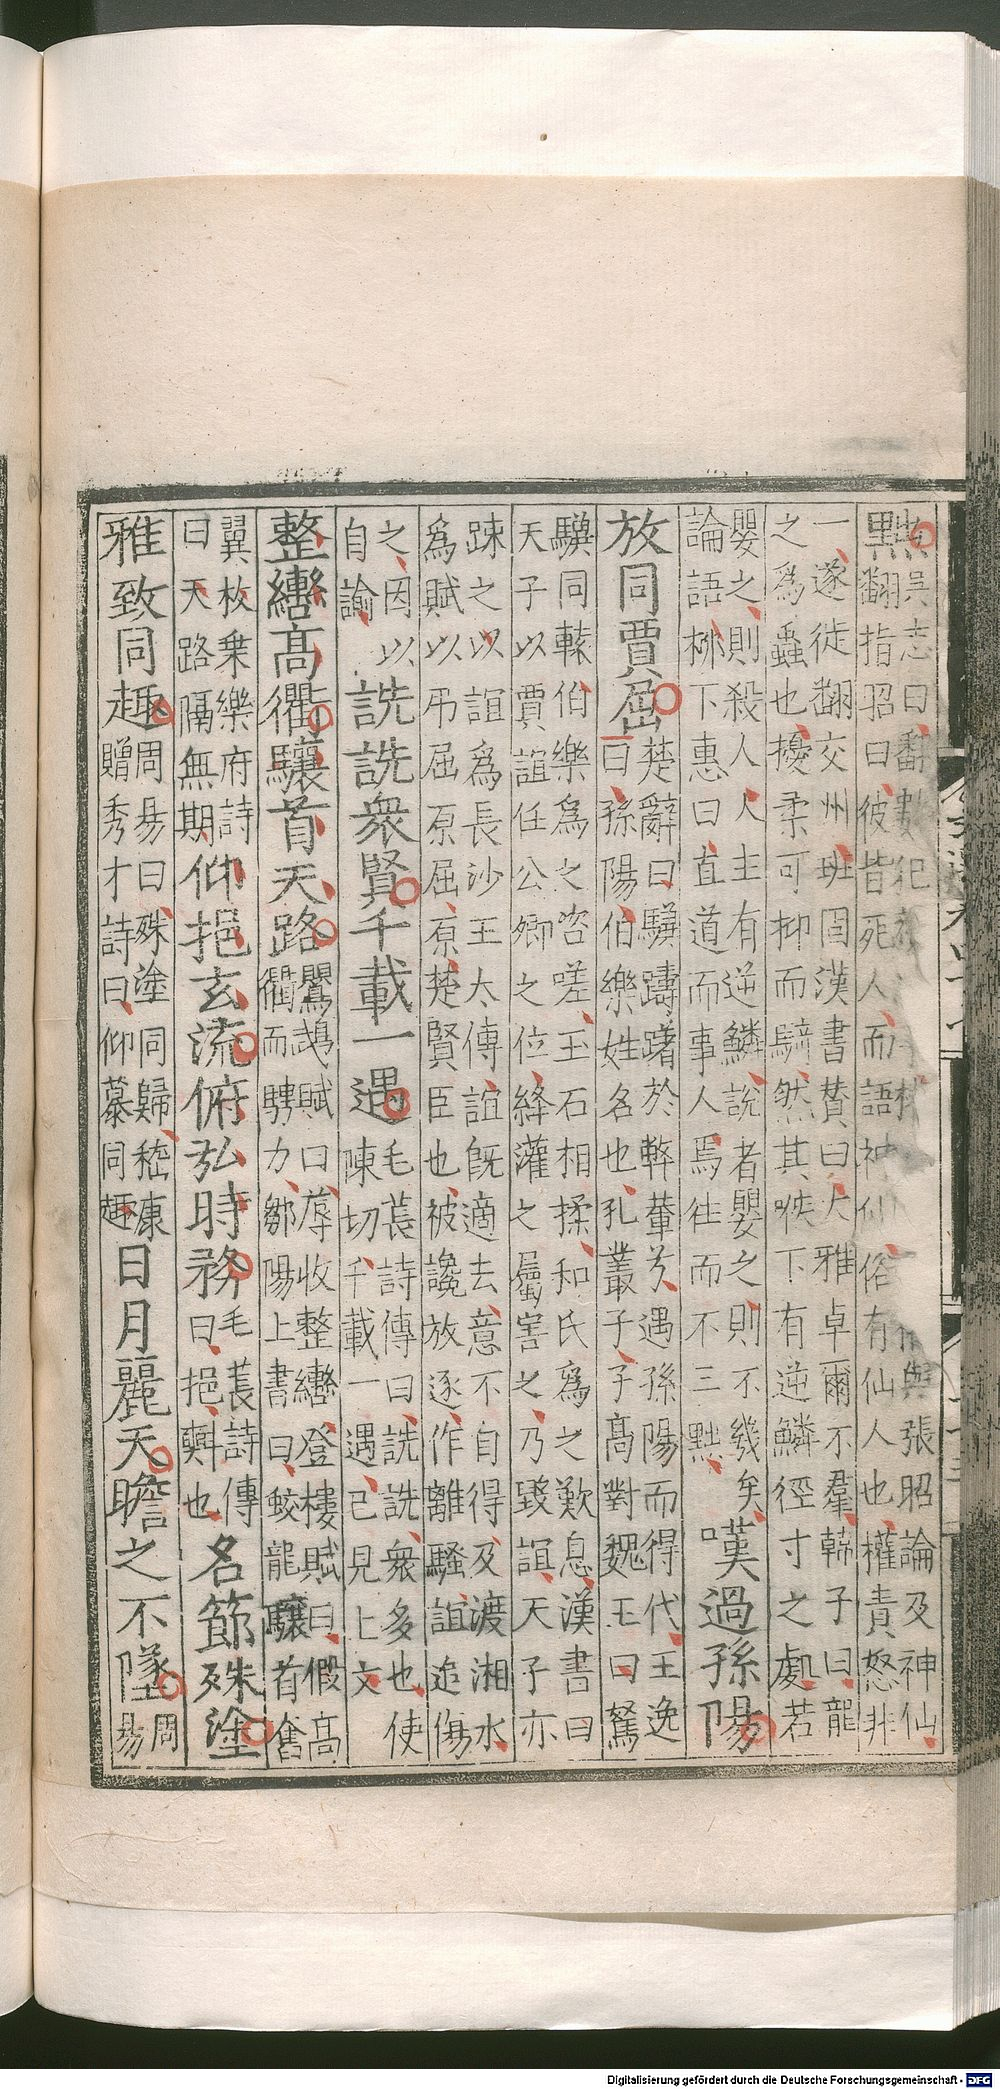 黜吳志曰翻數犯
張昭論及神仙
翻指昭曰彼皆死人而語神仙俗有仙人也權責怒非
一遂徙翻交州班固漢書贊曰大雅卓爾不羣韓子曰龍
之為蟲也擾柔可抑而騎然其喉下有逆鱗徑寸之處若
嬰之則殺人人主有逆鱗說者嬰之則不幾矣
論語柳下惠曰直道而事人焉往而不三黜
嘆過孫陽
放同賈屈
楚辭曰驥躊躇於弊輂兮遇孫陽而得代王逸
曰孫陽伯樂姓名也孔叢子子高對魏王曰駑
驥同轅伯樂為之咨嗟玉石相揉和氏為之歎息漢書曰
天子以賈誼任公卿之位絳灌之屬害之乃毀誼天子亦
踈之以誼為長沙王太傅誼既適去意不自得及渡湘水
為賦以弔屈原屈原楚賢臣也被讒放逐作離騷誼追傷
之因以
自諭
詵詵衆賢千載一遇
毛萇詩傳曰詵詵衆多也使
陳切千載一遇已見上文
整轡高衢驤首天路
鸚鵡賦曰蓐收整轡登樓賦曰假高
衢而騁力鄒陽上書曰蛟龍驤首奮
翼枚乗樂府詩
曰天路隔無期
仰挹玄流俯弘時務
毛萇詩傳
曰挹㪺也
名節殊塗
雅致同趣
周昜曰殊塗同歸嵇康
贈秀才詩曰仰慕同趣
日月麗天瞻之不墜
周
昜
Digitalisierung gefördert durch die Deutsche Forschungsgemeinschaft - DFG